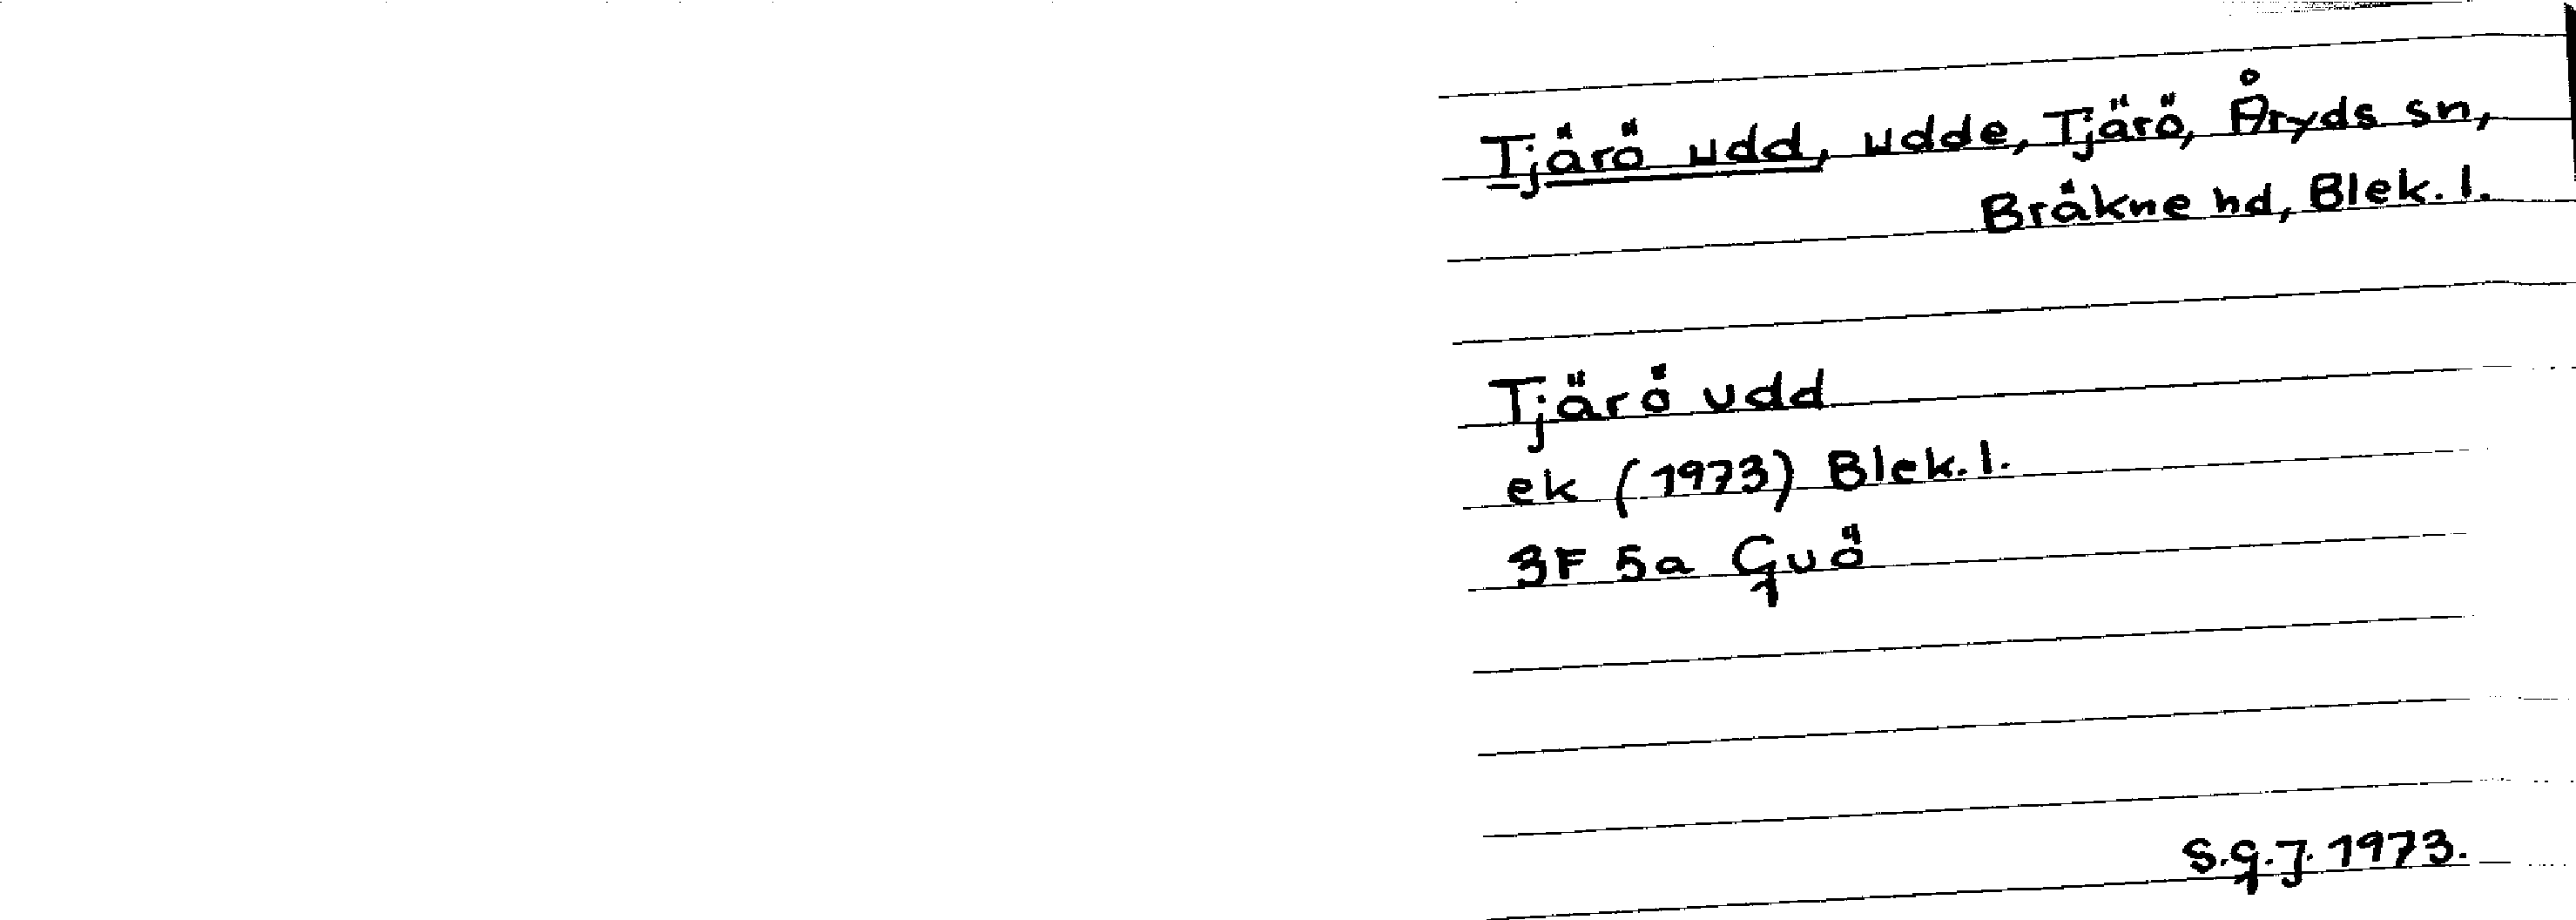 Tjärö udd, udde, Tjärö, Åryds sn,
Bräkne hd, Blek. l.
Tjärö udd
ek (1973) Blek. l.
3F 5a Guö
S.G.J. 1973.